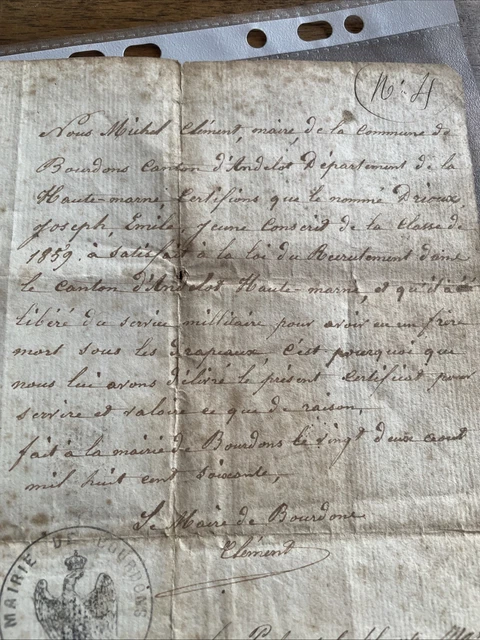 N° 4
Nous Michel Clément, maire, de la Commune de
Bourdons Canton d'Andelot Département de la
Haute-marne Certifions que le nommé Drioux
Joseph, Emile, Jeune Conscrit de la Classe de
1859. à satisfait à la loi du Recrutement dans
le canton d'Andelot Haute-marne, et qu'il a été
libéré du service millitaire pour avoir eu un frère
mort sous les drapeaux, c'est pourquoi que
nous lui avons délivré le présent certificat pour
servire et valoire ce que de raison,
fait à la mairie de Bourdons le vingt deux aout
mil huit cent soixante,
Le Maire de Bourdons
Clément
MAIRIE DE BOURDONS